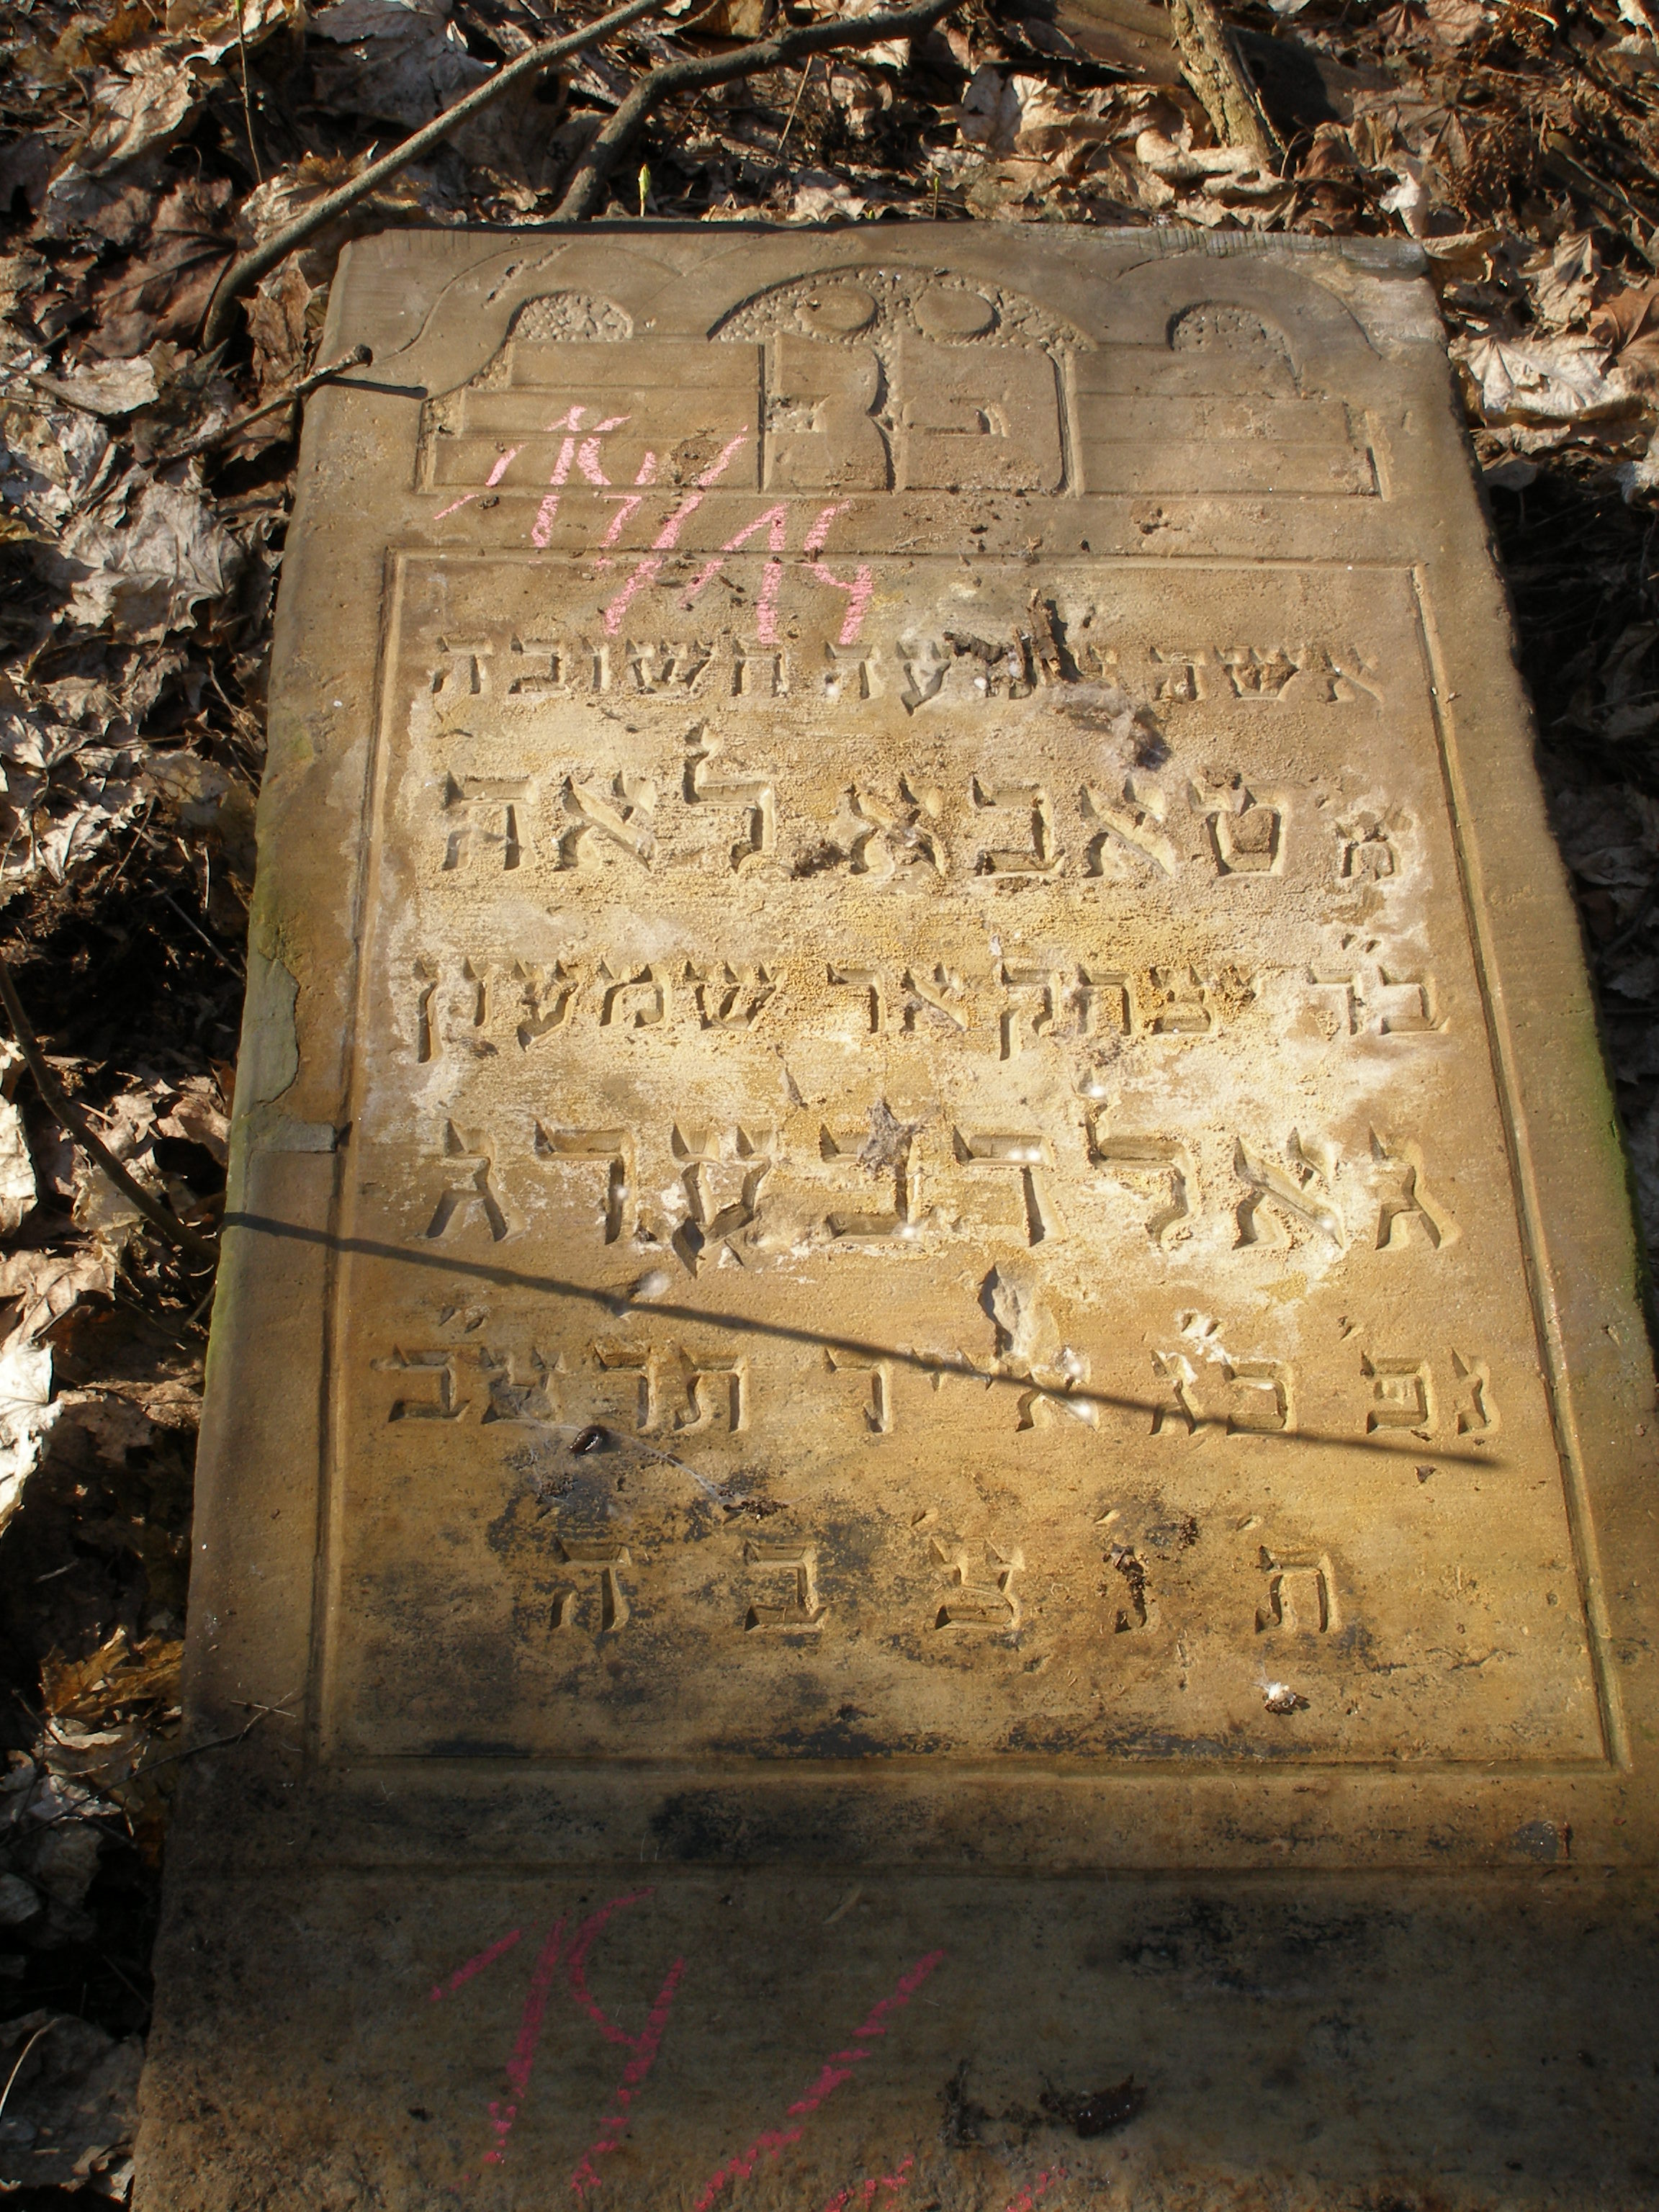 פ נ
אשה צנועה חשובה
מ טאבא לאה
ב״ר יצחק אר שמעון
גאלדבערג
נפ׳ כ״ג אייר תרצ״ב
ת׳ נ׳ צ׳ ב ה